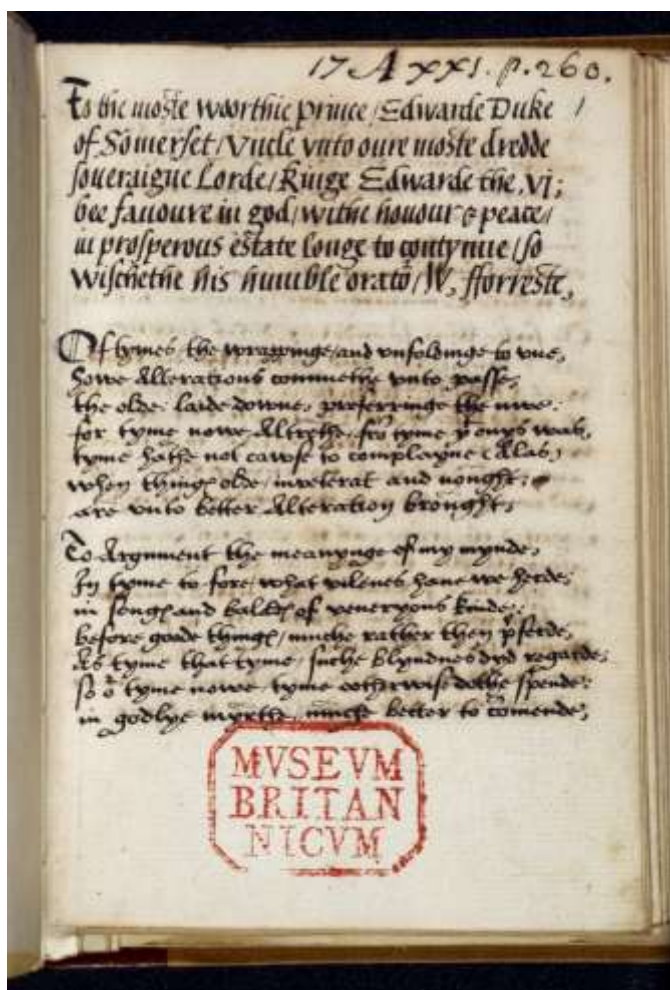 17 A xxi. p. 260.
To the moste woorthie prince / Edwarde Duke /
of Somerset / Vncle vnto oure moste dredde
soueraigne Lorde / Kinge Edwarde the .vj;
bee fauoure in god / withe honour & peace /
in prosperous estate longe to contynue / so
wischethe his humble orato^r / W. fforreste,
Of tymes the wrappinge / and vnfoldinge to vue,
howe Alterations commethe vnto passe,
the olde laide downe, preferringe the nwe:
for tyme nowe Altrethe, fro tyme y^t onys was,
tyme hathe not cawse to complayne (Alas)
when things olde, inveterat and nought:
are vnto better Alteration brought,
To Argument the meanynge of my mynde,
In tyme to fore, what vilenes have we herde,
in songes and balades of veneryous kinde:
before goode things / muche rather then p̄ferde,
As tyme that tyme, suche blyndnes dyd regarde:
so o^r tyme nowe, tyme ootherwise dothe spende:
in godlye myrthe, muche better to cōmende,
MVSEVM
BRITAN
NICVM